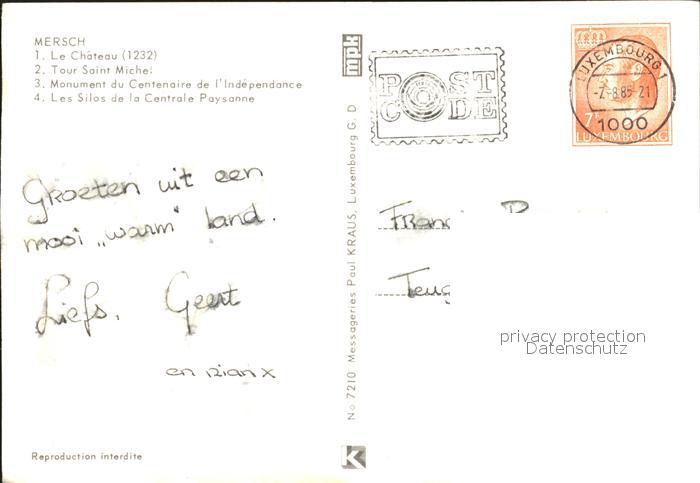 MERSCH
1. Le Château (1232)
2. Tour Saint Michel
3. Monument du Centenaire de l'Indépendance
4. Les Silos de la Centrale Paysanne
Groeten uit een
mooi „warm" land.
Liefs, Geert
en Rian x
Reproduction interdite
No 7210 Messageries Paul KRAUS, Luxembourg G. D
mpk
K
POST
CODE
LUXEMBOURG 1
-7.-8.85-21
1000
7F
LUXEMBOURG
privacy protection
Datenschutz